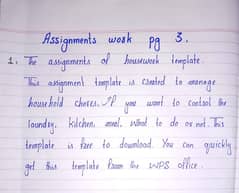 Assignments work pg 3.
1. The assignments of housework template.
This assignment template is created to manage
household chores. If you want to control the
laundry, kitchen, meal. What to do or not. This
template is free to download. You can quickly
get this template from the WPS office.